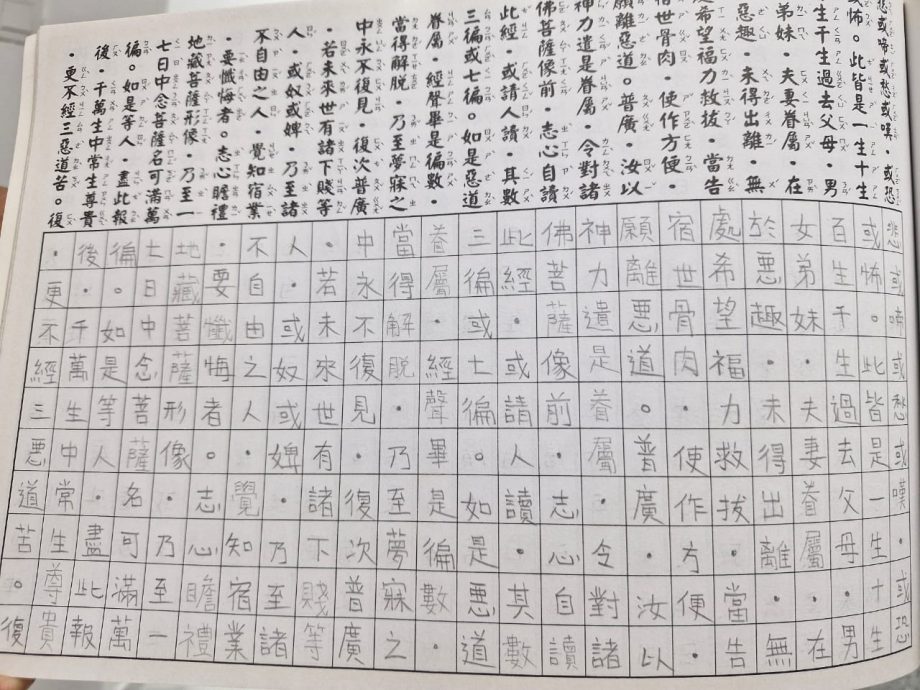 悲或啼或愁或嘆・或恐
或怖。此皆是一生十生
生千生過去父母・男
弟妹・夫妻眷屬・在
惡趣・未得出離・無
處希望福力救拔・當告
宿世骨肉・使作方便・
願離惡道。普廣・汝以
神力遣是眷屬・令對諸
佛菩薩像前・志心自讀
此經・或請人讀・其數
三徧或七徧。如是惡道
眷屬・經聲畢是徧數・
當得解脫・乃至夢寐之
中永不復見　復次普廣
・若未來世有諸下賤等
人・或奴或婢　乃至諸
不自由之人・覺知宿業
・要懺悔者。志心瞻禮
地藏菩薩形像・乃至一
七日中念菩薩名可滿萬
徧。如是等人・盡此報
後・千萬生中常生尊貴
・更不經三惡道苦。復
悲或啼或愁或嘆・或恐
或怖。此皆是一生十生
百生千生過去父母・男
女弟妹・夫妻眷屬・在
於惡趣・未得出離・無
處希望福力救拔・當告
宿世骨肉・使作方便・
願離惡道。普廣・汝以
神力遣是眷屬・令對諸
佛菩薩像前・志心自讀
此經・或請人讀・其數
三徧或七徧。如是惡道
眷屬・經聲畢是徧數・
當得解脫・乃至夢寐之
中永不復見・復次普廣
・若未來世有諸下賤等
人・或奴或婢・乃至諸
不自由之人・覺知宿業
・要懺悔者。志心瞻禮
地藏菩薩形像・乃至一
七日中念菩薩名可滿萬
徧。如是等人・盡此報
後・千萬生中常生尊貴
・更不經三惡道苦。復